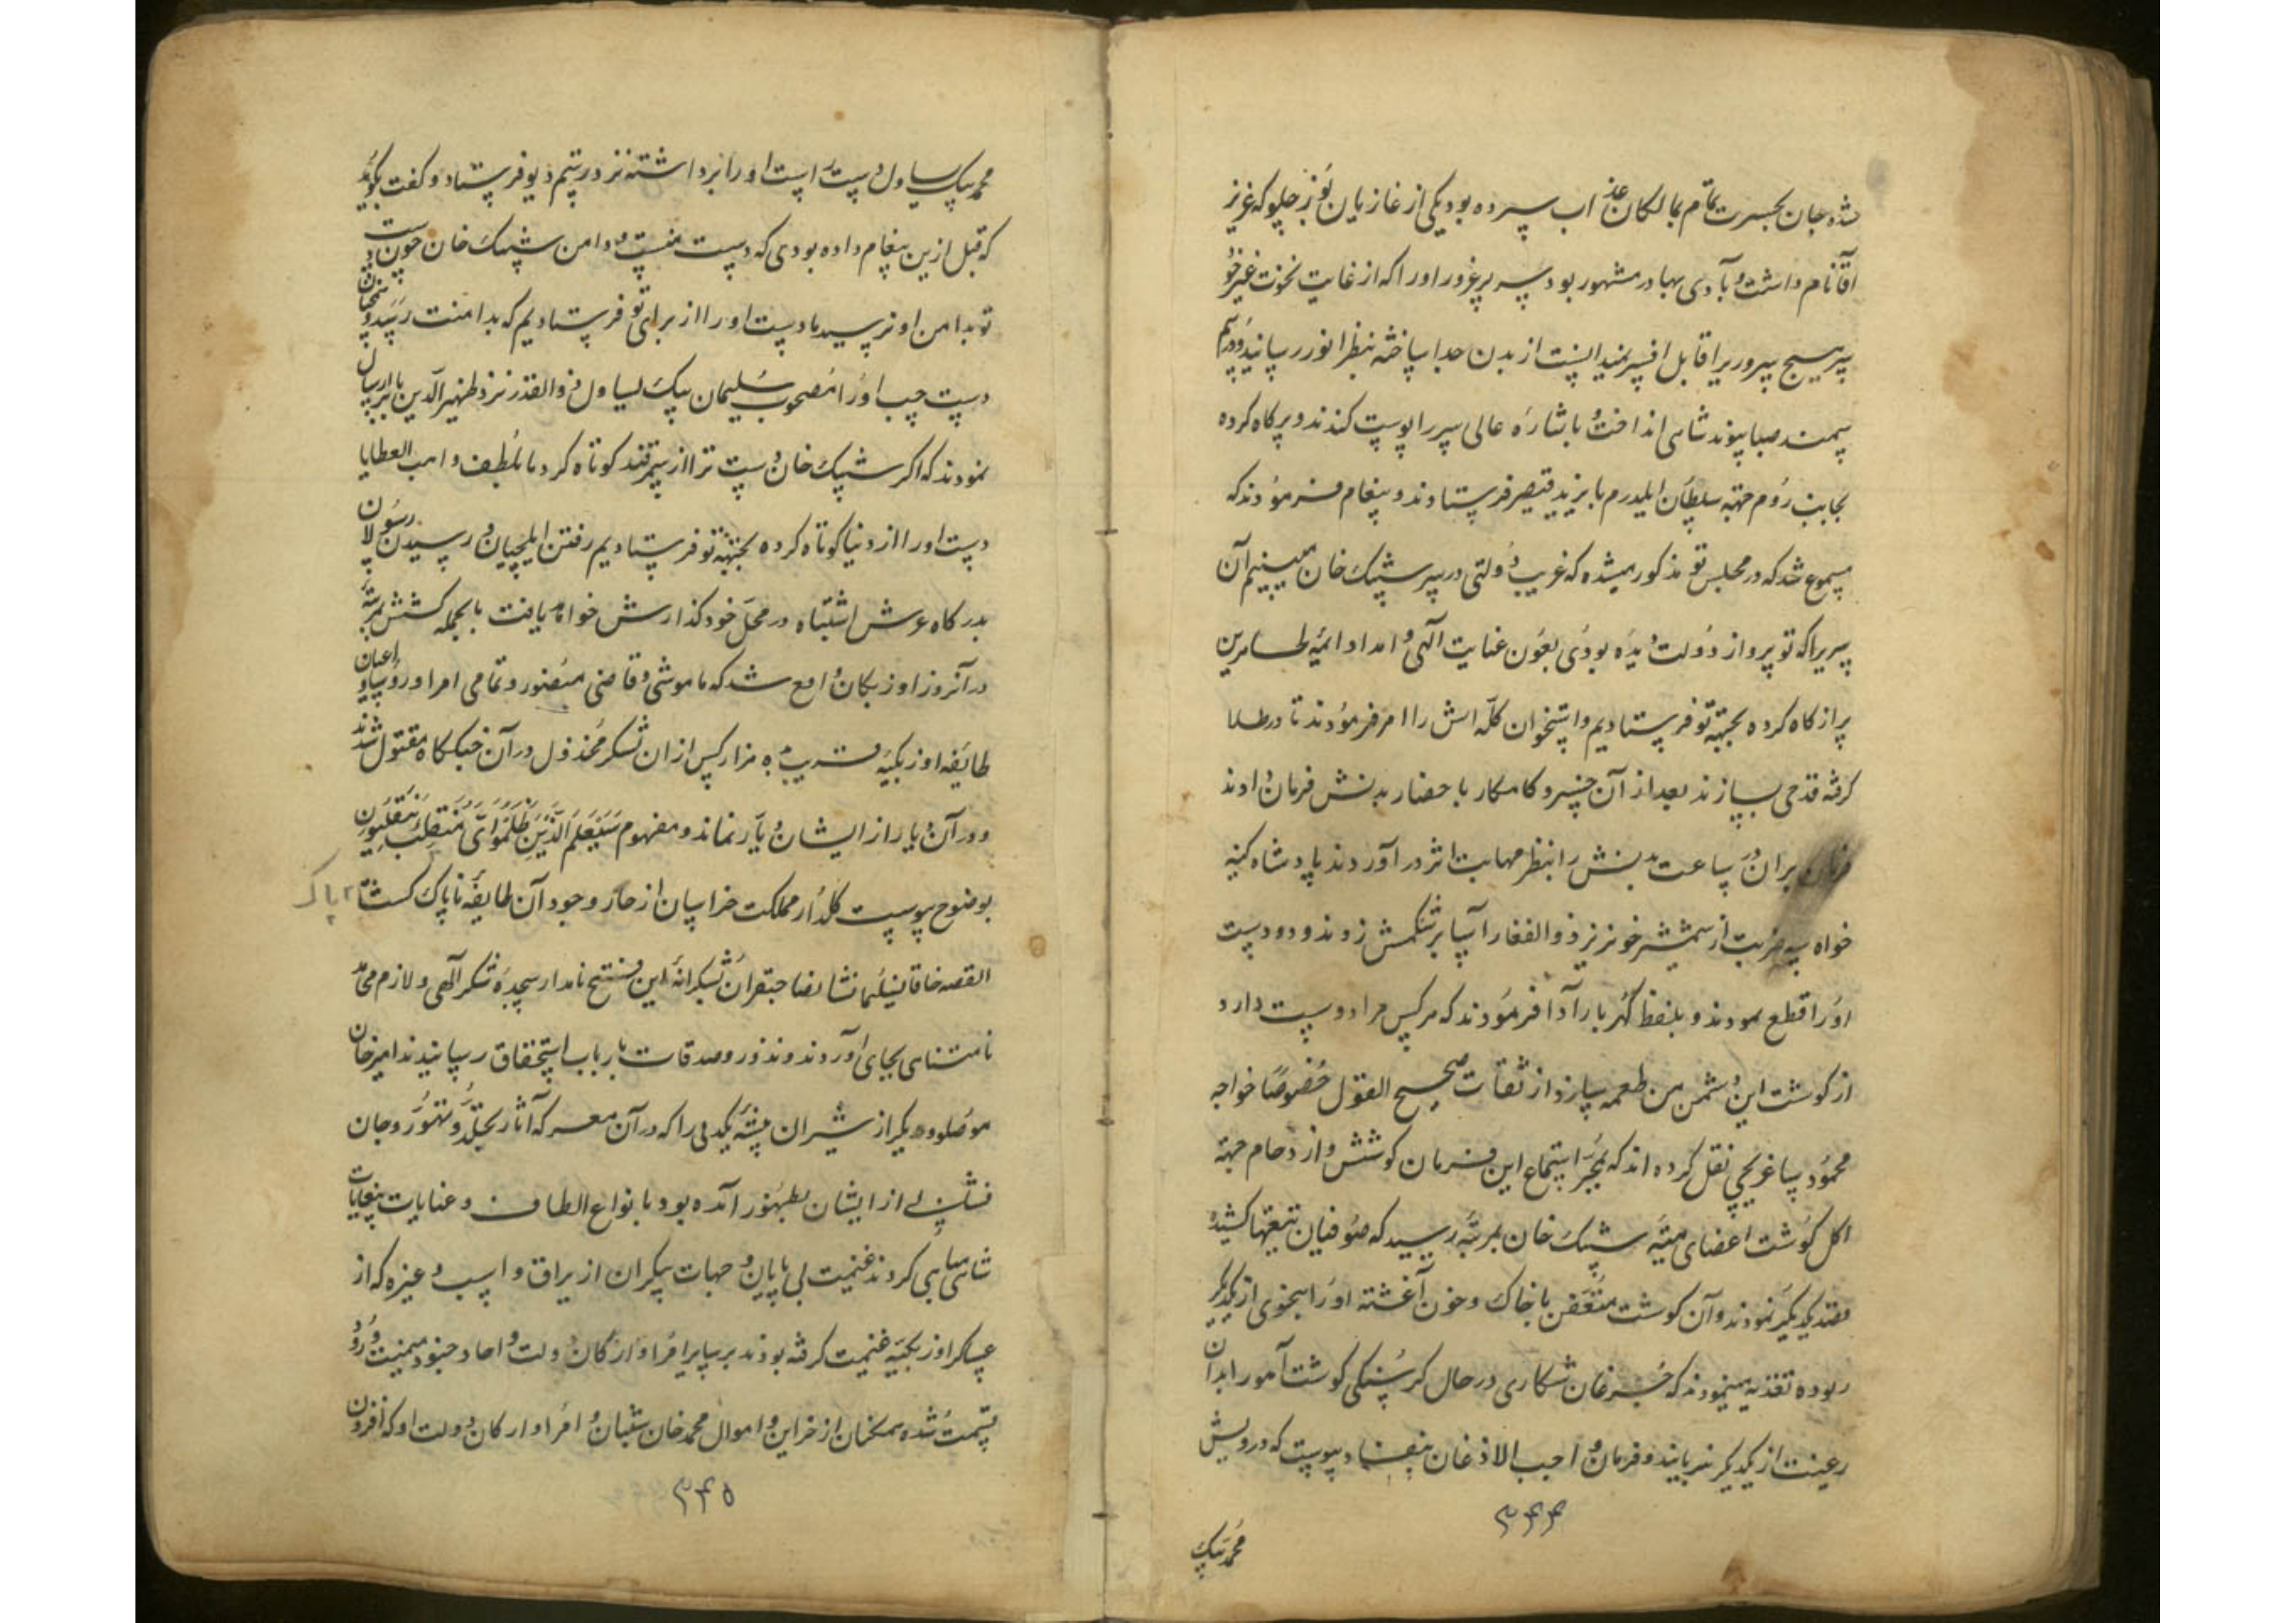 شده جان بحسرت تمام بمالکان عذاب سپرده بود یکی از غازیان نوزجلو که عزیز
آقا نام داشت و بآدی بهادر مشهور بود سر پرغرور او را که از غایت نخوت غیر خو
سر هیچ سروریرا قابل افسر نمیدانست از بدن جدا ساخته بنظر انور رسانید و در سم
سمند صبا پیوند شاهی انداخت و باشاره عالی سر را پوست کندند و پر کاه کرده
بجانب روم جهته سلطان ایلدرم بایزید قیصر فرستادند و پیغام فرمودند که
مسموع شد که در مجلس تو مذکور میشده که غریب دولتی در سر شیبک خان میبینیم آن
سریرا که تو پر از دولت دیده بودی بعون عنایت الهی و امداد ائمه طاهرین
پر از کاه کرده بجهته تو فرستادیم و استخوان کله اش را امر فرمودند تا در طلا
گرفته قدحی بسازند بعد از آن خسرو کامکار باحضار بدنش فرمان دادند
فرمان بران در ساعت بدنش را بنظر مهابت اثر در آوردند پادشاه کینه
خواه سه ضربت از شمشیر خونریز ذوالفقار آسا بر شکمش زدند و دو دست
او را قطع نمودند و بلفظ گهربار ادا فرمودند که هر کس مرا دوست دارد
از گوشت این دشمن من طعمه سازد از ثقات صحیح القول خصوصا خواجه
محمود ساغرچی نقل کرده اند که بمجرد استماع این فرمان کوشش و ازدحام جهته
اکل گوشت اعضای میته شیبک خان بمرتبه رسید که صوفیان تیغها کشیده
قصد یکدیگر نمودند و آن گوشت متعفن با خاک و خون آغشته او را بنحوی از یکدیگر
ربوده تغذیه مینمودند که مرغان شکاری در حال گرسنگی گوشت آهو را بدان
رغبت از یکدیگر نربایند و فرمان واجب الاذعان بنفاد پیوست که درویش
۳۴۴
محمد بیک
محمد بیک یساول دست راست او را برداشته نزد رستم دیو فرستاد و گفت بگوید
که قبل ازین پیغام داده بودی که دست منست و دامن شیبک خان چون دست
تو بدامن او نرسید ما دست او را از برای تو فرستادیم که بدامنت رسد و همچنان
دست چپ او را مصحوب سلیمان بیک یساول ذوالقدر نزد ظهیرالدین بابر ارسال
نمودند که اگر شیبک خان دست ترا از سمرقند کوتاه کرد ما بلطف واهب العطایا
دست او را از دنیا کوتاه کرده بجهته تو فرستادیم رفتن ایلچیان و رسیدن رسولان
بدرگاه عرش اشتباه در محل خود گذارش خواهد یافت بالجمله کشش بمرتبه
در آنروز اوزبکان واقع شد که ماموشی و قاضی منصور و تمامی امرا و رؤسا و اعیان
طایفه اوزبکیه قریب ده هزار کس از ان لشکر مخذول در آن جنگ گاه مقتول شدند
و در آن دیار از ایشان دیار نماند و مفهوم سَیَعْلَمُ الَّذینَ ظَلَمُوا اَیَّ مُنْقَلَبٍ یَنْقَلِبُون
بوضوح پیوست گلزار مملکت خراسان از خار وجود آن طایفه ناپاک گشت
پاک
القصه خاقان سلیمانشان صاحبقران بشکرانه این فتح نامدار سجده شکر الهی و لازم محامد
نامتناهی بجای آوردند و نذور و صدقات بارباب استحقاق رسانیدند امیرخان
موصلو و دیگر از شیران بیشه یکدلی را که در آن معرکه آثار تجلد و تهور و جان
فشانی از ایشان بظهور آمده بود بانواع الطاف و عنایات بیغایات
شاهی مباهی کردند غنیمت بی پایان و جهات بیکران از یراق و اسب و غیره که از
عساکر اوزبکیه غنیمت گرفته بودند بر سایر امرا و ارکان دولت و احاد جنود میمنت ورود
قسمت شده همگنان از خزاین و اموال محمد خان شیبان و امرا و ارکان دولت او که افزون
۳۴۵